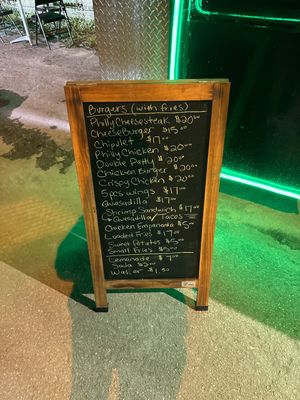 Burgers (with fries)
Philly Cheesesteak $20.00
CheeseBurger $15.00
Chipolet $17.00
Philly Chicken $20.00
Double Patty $20.00
Chicken Burger $20.00
Crispy Chicken $20.00
5pcs wings $17.00
Quesadilla $17.00
Shrimp Sandwich $17.00
Quesadilla/Tacos
Chicken Empanada $5.00
Loaded Fries $17.00
Sweet Potatos $5.00
Small Fries $5.00
Lemonade $7.00
Soda $2.00
Water $1.50